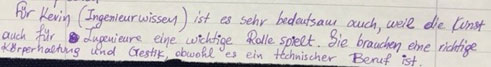 Für Kevin (Ingenieurwissen) ist es sehr bedeutsam auch, weil die Kunst
auch für Ingenieure eine wichtige Rolle spielt. Sie brauchen eine richtige
Körperhaltung und Gestik, obwohl es ein technischer Beruf ist.